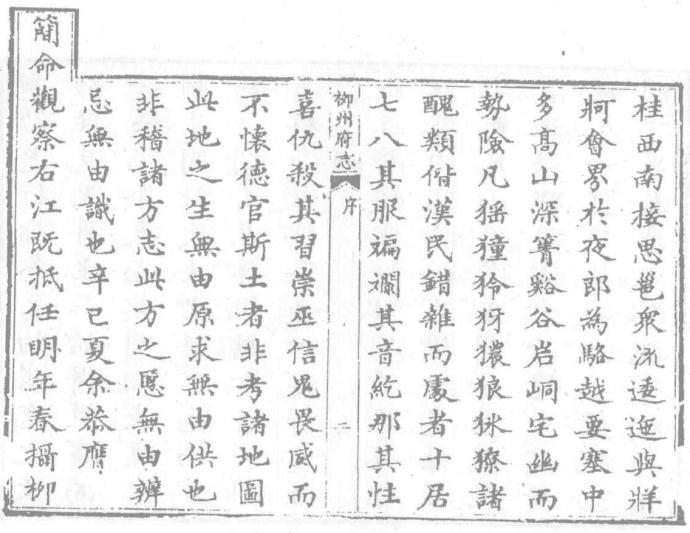 桂西南接思邕衆流逶迤與牂
牁會界於夜郎為駱越要塞中
多高山深箐谿谷岩峒宅幽而
勢險凡猺獞狑犽獽狼狇獠諸
醜類偕漢民錯雜而處者十居
七八其服褊斕其音紇那其性
柳州府志 序 二
喜仇殺其習崇巫信鬼畏威而
不懷德官斯土者非考諸地圖
此地之生無由原求無由供也
非稽諸方志此方之慝無由辨
忌無由識也辛巳夏余恭膺
簡命觀察右江既抵任明年春攝柳